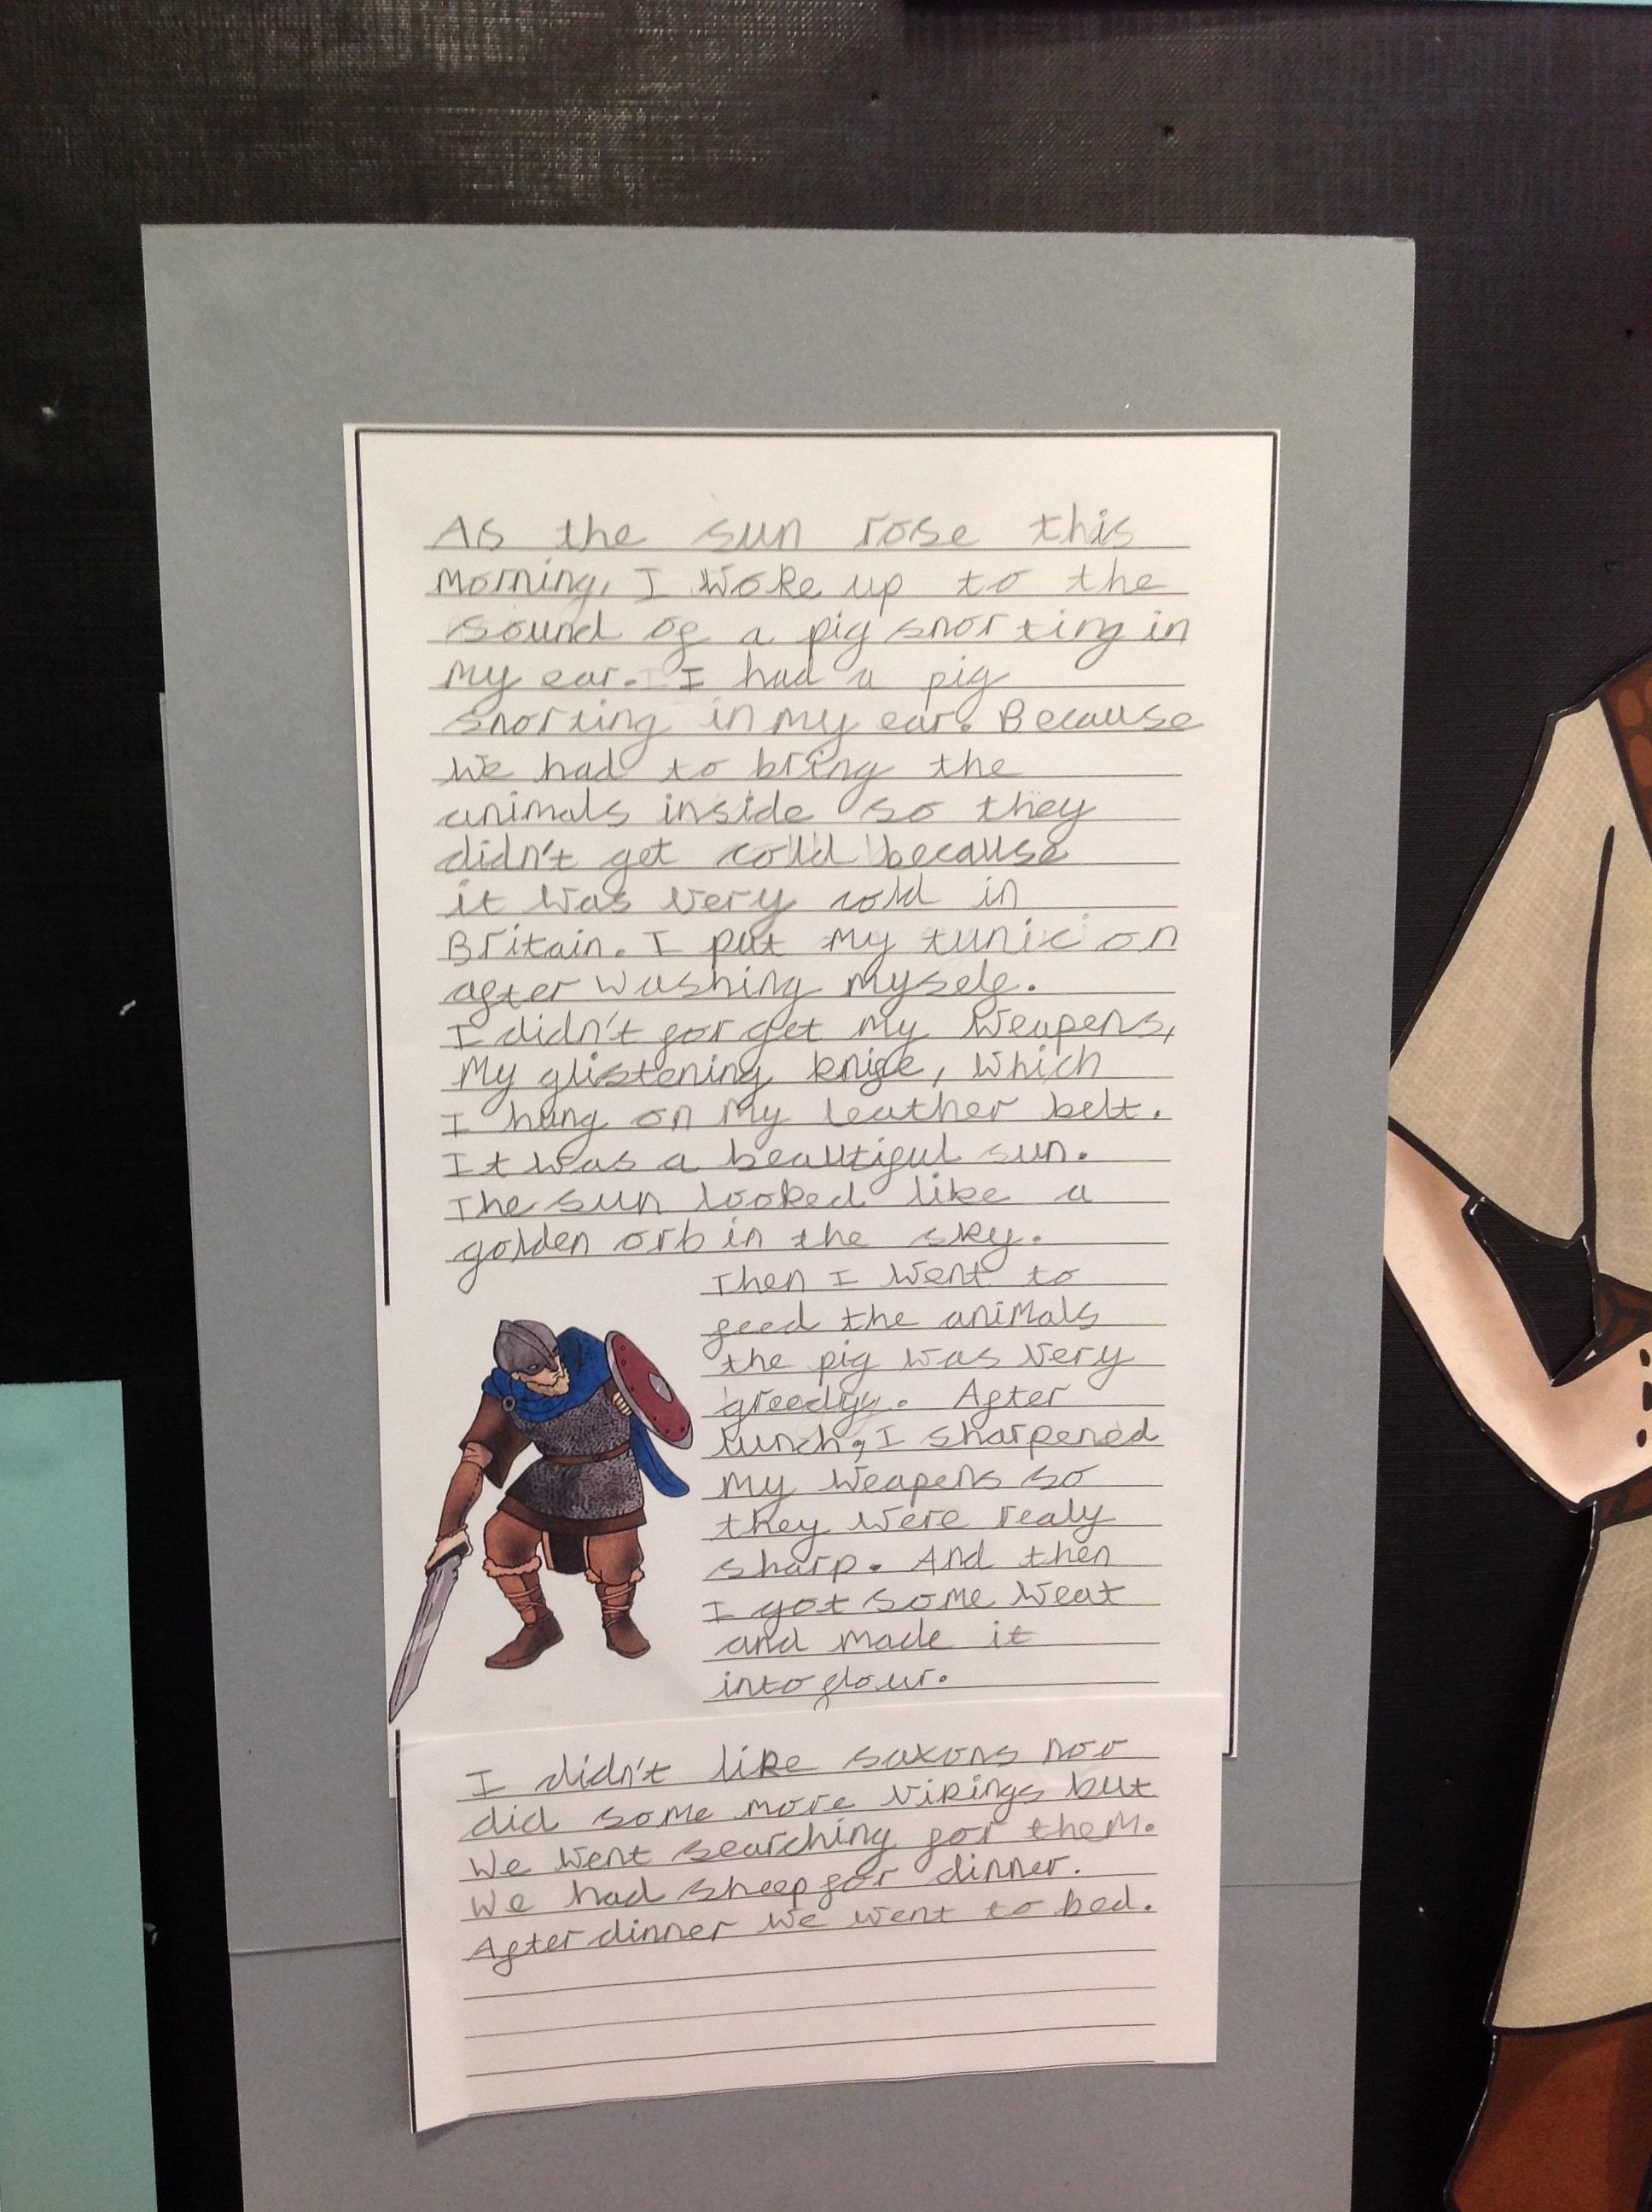 As the sun rose this
morning, I woke up to the
sound of a pig snorting in
my ear. I had a pig
snorting in my ear. Because
we had to bring the
animals inside so they
didn't get cold because
it was very cold in
Britain. I put my tunic on
after washing myself.
I didn't forget my weapens,
My glistening knife, which
I hung on my leather belt.
It was a beautiful sun.
The sun looked like a
golden orb in the sky.
Then I went to
feed the animals
the pig was very
greedy. After
lunch, I sharpened
my weapens so
they were realy
sharp. And then
I got some weat
and made it
into flour.
I didn't like saxons noo
did some more vikings but
we went searching for them.
We had sheep for dinner.
After dinner we went to bed.